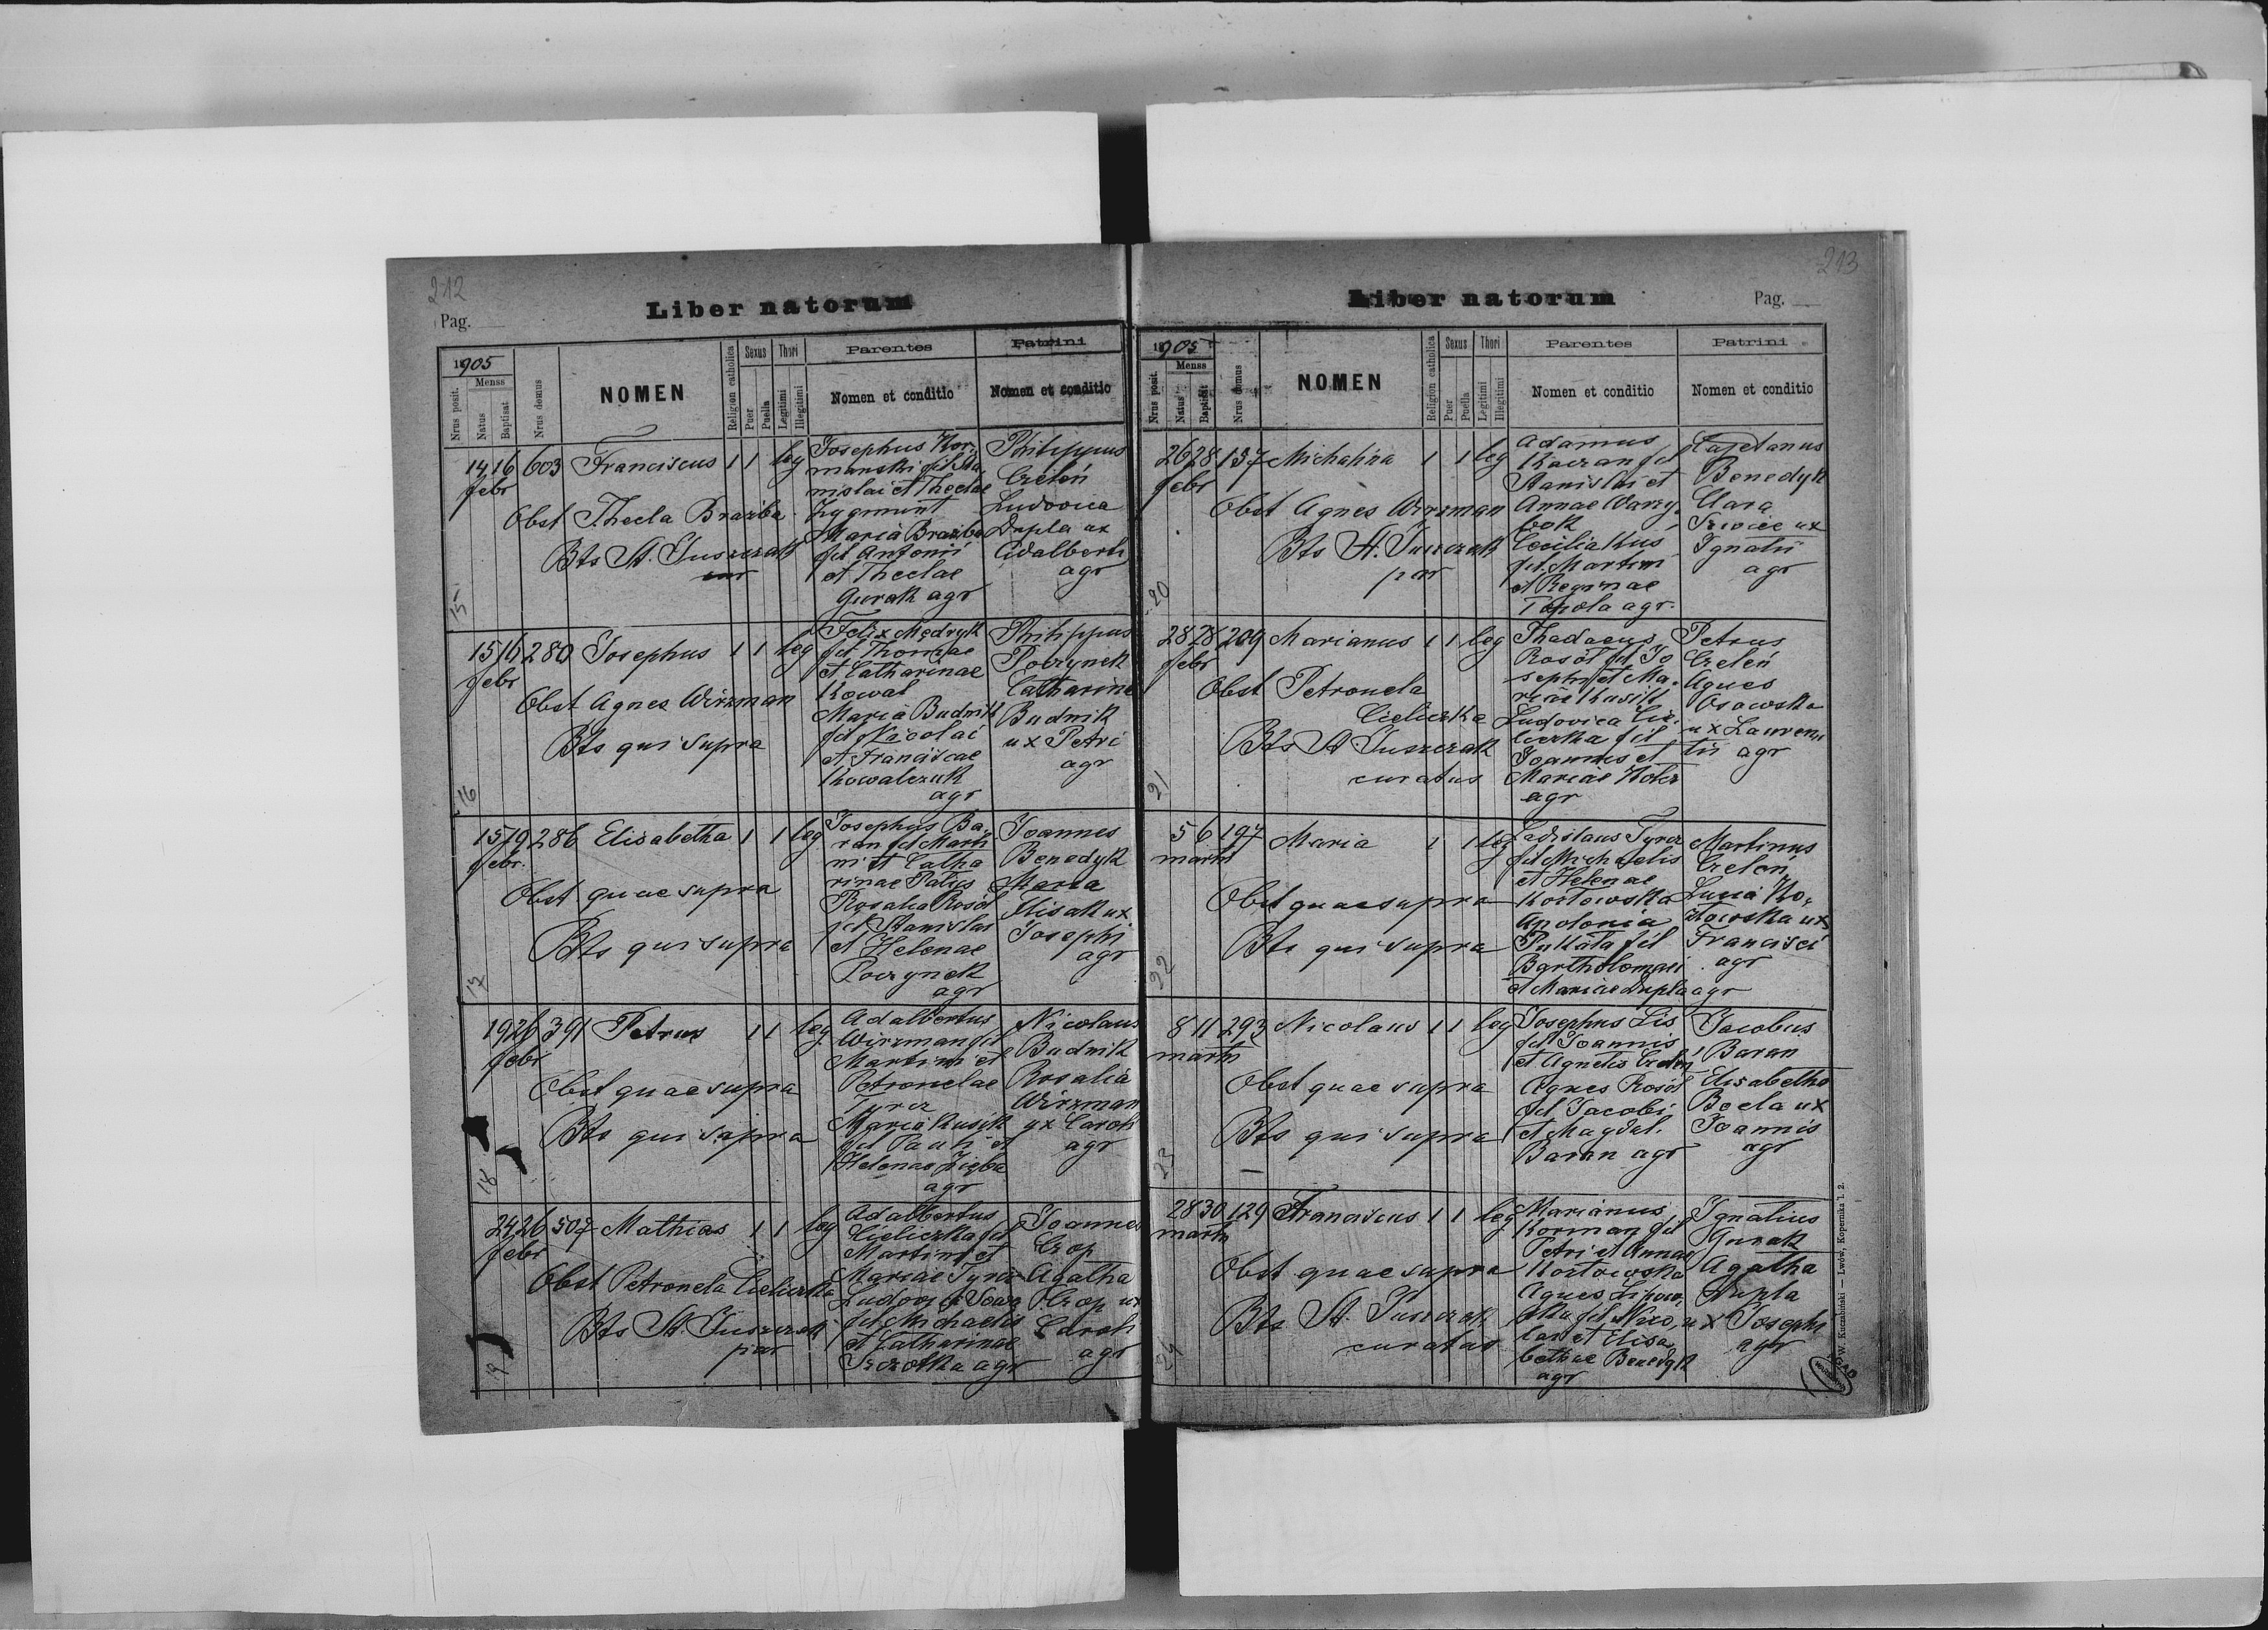 212
Pag.
Liber natorum
1905
Nrus posit.
Menss
Natus
Baptisat
Nrus domus
NOMEN
Religion catholica
Sexus
Puer
Puella
Thori
Legitimi
Illegitimi
Parentes
Nomen et conditio
Patrini
Nomen et conditio
15
14 16 603 Franciscus 1 1 leg
febr
Obst Thecla Braziba
Bts St. Juszczak
Josephus Kor-
manski fil Sta
nislai et Theclae
Zygmunt
Maria Braziba
fil Antonii
et Theclae
Gurak agr
Philippus
Czeleń
Ludovica
Dupla ux
Adalberti
agr
16
15 16 280 Josephus 1 1 leg
febr
Obst Agnes Wirzman
Bts qui supra
Felix Mędryk
fil Thomae
et Catharinae
Kowal
Maria Budnik
fil Nicolai
et Franciscae
Kowalczuk
agr
Philippus
Poczynek
Catharine
Budnik
ux Petri
agr
17
15 19 286 Elisabetha 1 1 leg
febr.
Obst quae supra
Bts qui supra
Josephus Ba-
ran fil Marti
ni et Catha
rinae Patus
Rosalia Rosół
fil Stanislai
et Helenae
Poczynek
agr
Joannes
Benedyk
Maria
Misak ux
Josephi
agr
18
19 26 391 Petrus 1 1 leg
febr
Obst quae supra
Bts qui supra
Adalbertus
Wirzman fil
Martini et
Petronelae
Tyrcz
Maria Kusik
fil Pauli et
Helenae Zięba
agr
Nicolaus
Budnik
Rosalia
Wirzman
ux Caroli
agr
19
24 26 507 Mathias 1 1 leg
febr
Obst Petronela Cieliczka
Bts St. Juszczak
par
Adalbertus
Cieliczka fil
Martini et
Mariae Tyrcz
Ludovica Sowa
fil Michaelis
et Catharinae
Szczotka agr
Joannes
Czop
Agatha
Czop ux
Caroli
agr
213
Liber natorum
Pag.
1905
Nrus posit.
Menss
Natus
Baptisat
Nrus domus
NOMEN
Religion catholica
Sexus
Puer
Puella
Thori
Legitimi
Illegitimi
Parentes
Nomen et conditio
Patrini
Nomen et conditio
20
26 28 137 Michalina 1 1 leg
febr
Obst Agnes Wirzman
Bts St. Juszczak
par
Adamus
Kaczan fil
Stanislai et
Annae Warzy
bok
Cecilia Kus
fil. Martini
et Reginae
Topola agr.
Cajetanus
Benedyk
Clara
Szwiec ux
Ignatii
agr
21
28 28 209 Marianus 1 1 leg
febr
Obst Petronela
Cieliczka
Bts St Juszczak
curatus
Thadaeus
Rosół fil Jo
sephi et Ma-
riae Kusik
Ludovica Cie-
liczka fil
Joannis et
Mariae Holcz
agr
Petrus
Czeleń
Agnes
Osowska
ux Lauren,
tii agr
22
5 6 197 Maria 1 1 leg
martii
Obst quae supra
Bts qui supra
Ladislaus Tyrcz
fil Michaelis
et Helenae
Kozłowska
Apolonia
Pukała fil
Bartholomaei
et Mariae Dupla agr
Martinus
Czeleń
Lucia Ko-
złowska ux
Francisci
agr
23
8 11 293 Nicolaus 1 1 leg
martii
Obst quae supra
Bts qui supra
Josephus Lis
fil Joannis
et Agnetis Czeleń
Agnes Rosół
fil Jacobi
et Magdal.
Baran agr
Jacobus
Baran
Elisabetha
Becla ux
Joannis
agr
24
28 30 129 Franciscus 1 1 leg
martii
Obst quae supra
Bts St. Juszczak
curatus
Marianus
Korman fil
Petri et Annae
Kozłowska
Agnes Lipow,
ska fil Nico,
lai et Elisa,
bethae Benedyk
agr
Ignatius
Gurak
Agatha
Dupla
ux Josephi
agr
W. Kuczabiński — Lwów, Kopernika l. 2.